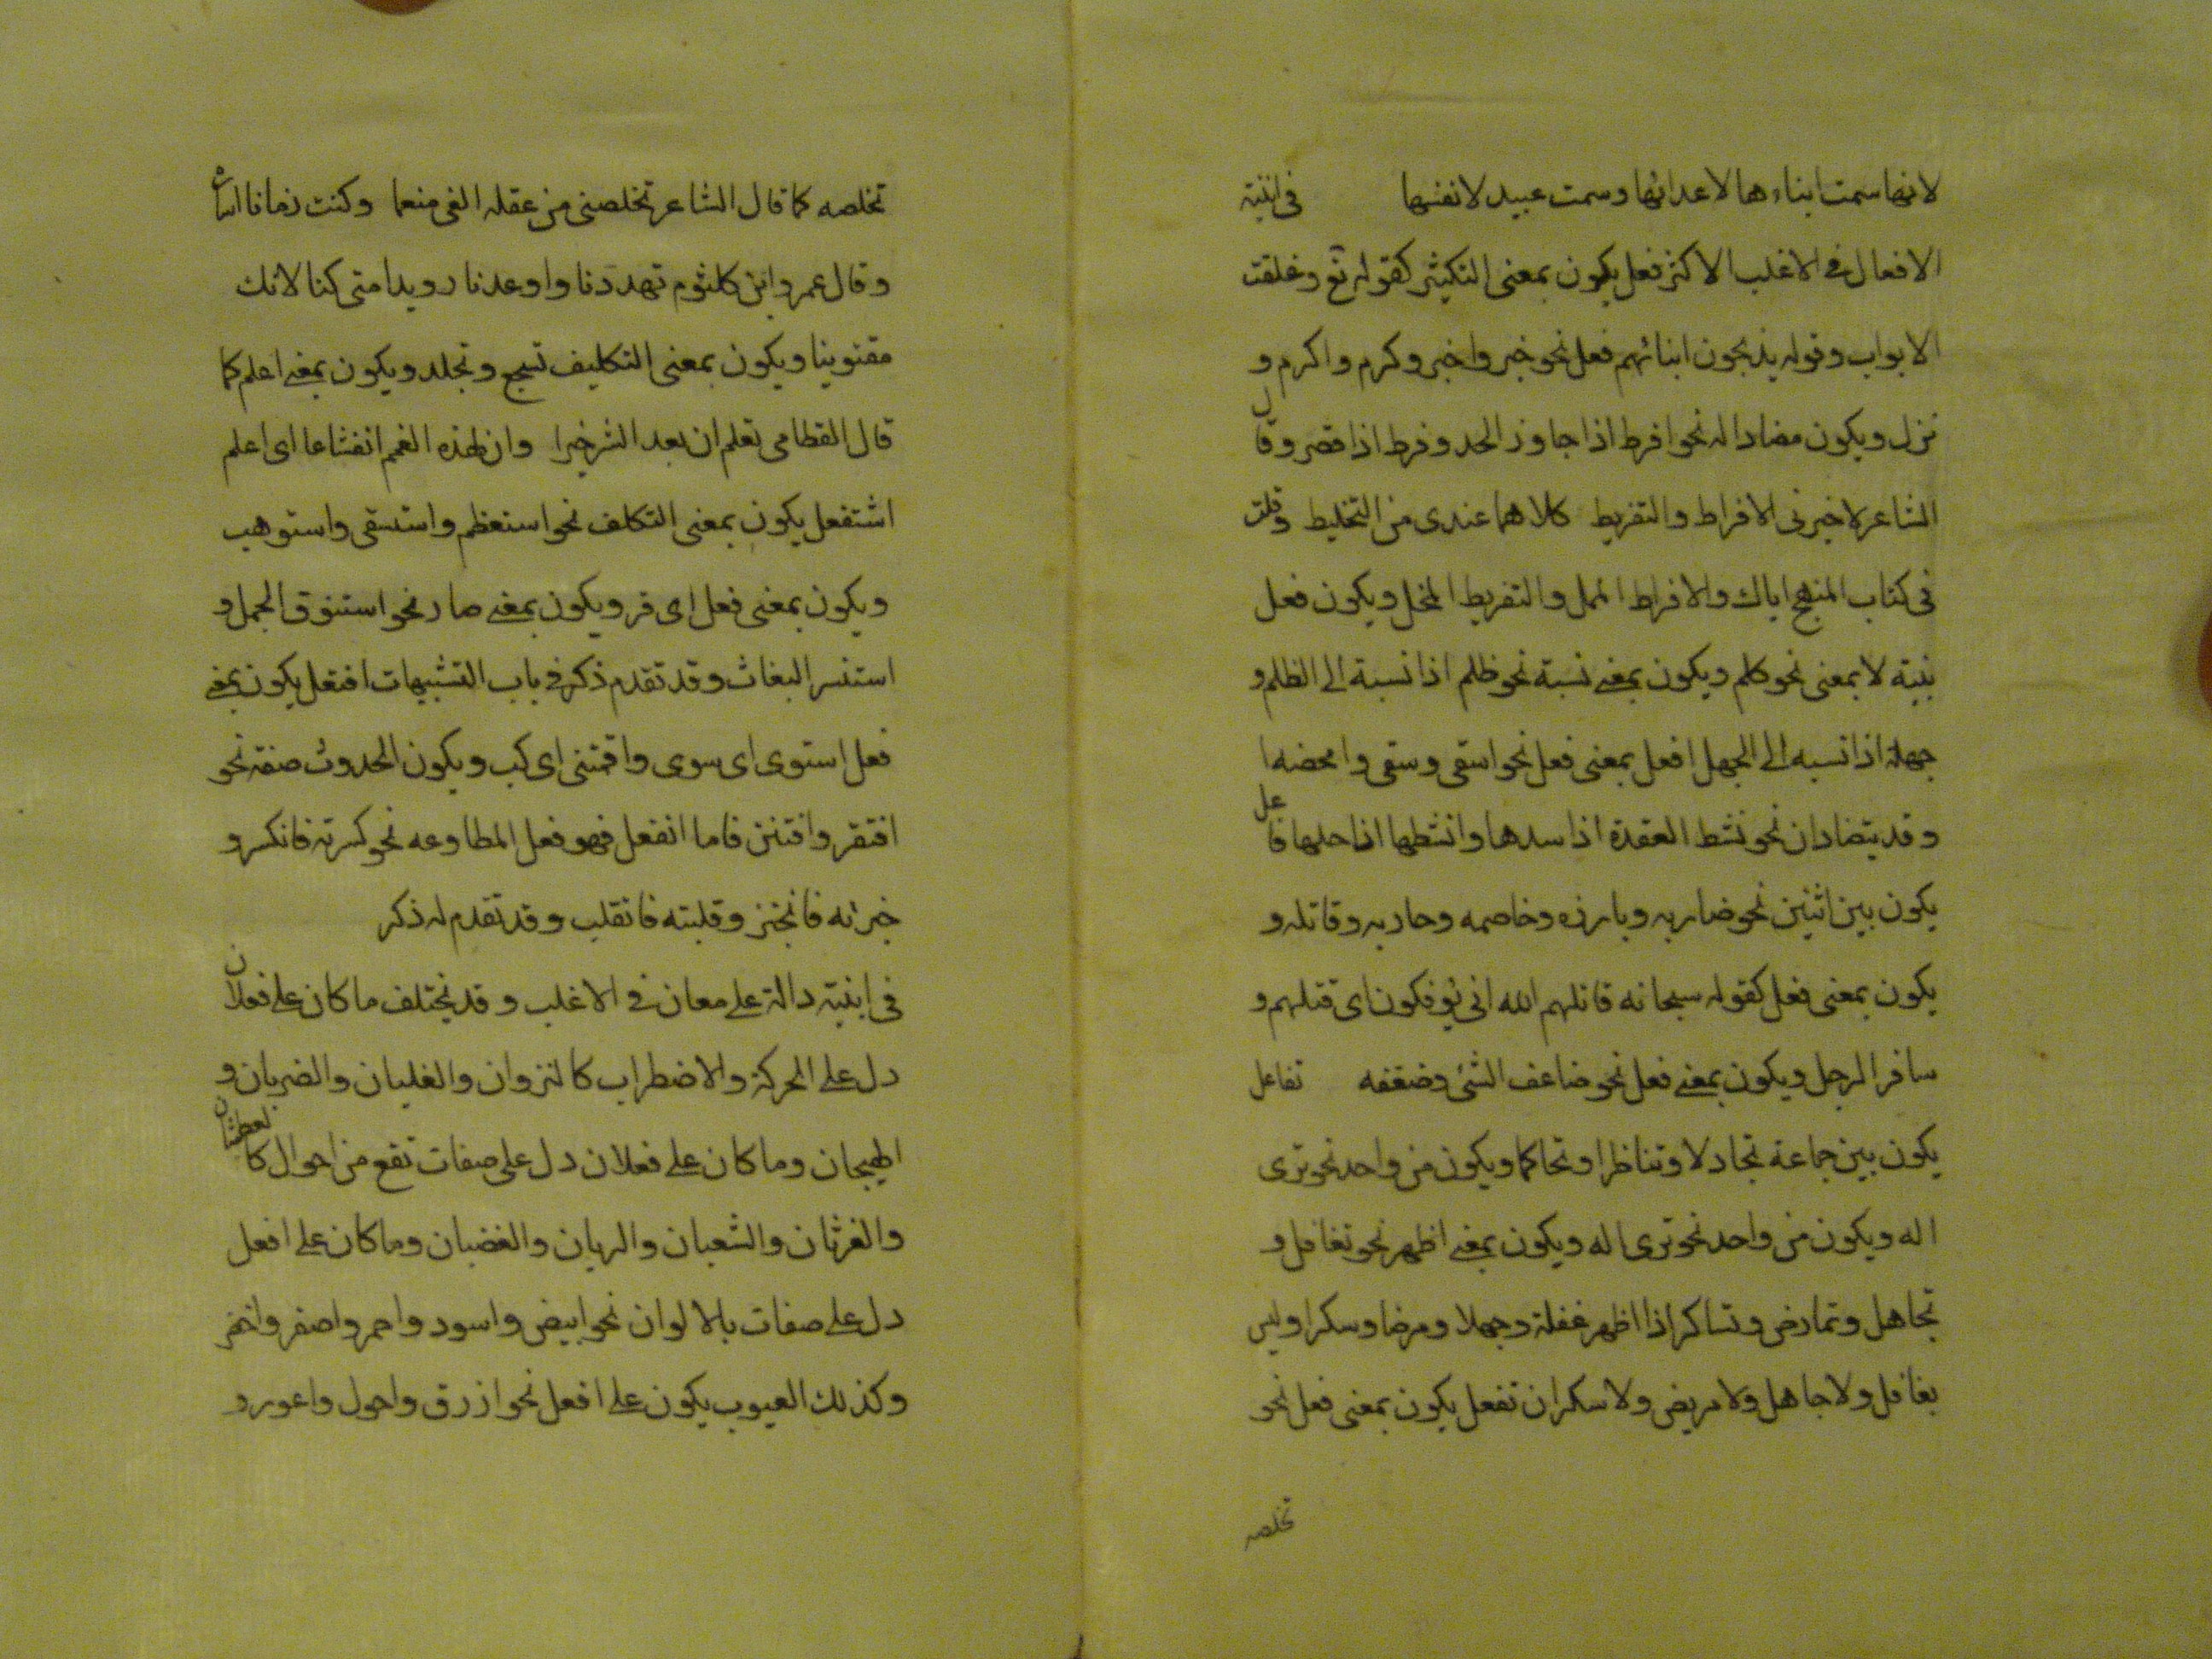 لانها سمت ابناءها لاعدائها وسمت عبيد لانفسها في ابنية
الافعال في الاغلب الاكثر فعل يكون بمعنى التكثير كقوله تع وغلقت
الابواب وقوله يذبحون ابنائهم فعل نحو خبر واخبر وكرم واكرم و
نزل ويكون مضادا له نحو افرط اذا جاوز الحد وفرط اذا قصر وقال
الشاعر لاخير في الافراط والتفريط كلاهما عندى من التخليط وقلت
في كتاب المنهج اياك والافراط الممل والتفريط المخل ويكون فعل
بنية لا بمعنى نحو كلم ويكون بمعنى نسبة نحو ظلم اذا نسبة الى الظلم و
جهله اذا نسبه الى الجهل افعل بمعنى فعل نحو اسقى وسقى وامحضه
وقد يتضادان نحو نشط العقدة اذا سدها وانشطها اذا حلها فاعل
يكون بين اثنين نحو ضاربه وبارزه وخاصمه وحاربه وقاتله و
يكون بمعنى فعل كقوله سبحانه قاتلهم الله انى يؤفكون اى قتلهم و
سافر الرجل ويكون بمعنى فعل نحو ضاعف الشئ وضعفه تفاعل
يكون بين جماعة تجادلا وتناظرا وتحاكما ويكون من واحد نحو ترى
اله ويكون من واحد نحو ترى اله ويكون بمعنى اظهر نحو تغافل و
تجاهل وتمارض وتساكر اذا اظهر غفلة وجهلا ومرضا وسكرا وليس
بغافل ولا جاهل ولا مريض ولا سكران تفعل يكون بمعنى فعل نحو
تخلصه
تخلصه كما قال الشاعر تخلصنى من عقله الغى منعما وكنت زمانا
وقال عمرو ابن كلثوم تهددنا واوعدنا رويدا متى كنا لامك
مقتوينا ويكون بمعنى التكليف تشجع وتجلد ويكون بمعنى اعلم كما
قال القطامى تعلم ان بعد الشر خيرا وان لهذه الغمم انقشاعا اى اعلم
اشتفعل يكون بمعنى التكلف نحو استعظم واستسقى واستوهب
ويكون بمعنى فعل اى قر ويكون بمعنى صار نحو استنوق الجمل و
استنسر البغاث وقد تقدم ذكره في باب التشبيهات افتعل يكون بمعنى
فعل استوى اى سوى واقتنى اى كب ويكون الحدوث صفة نحو
افتقر وافتتن فاما انفعل فهو فعل المطاوعه نحو كسرته فانكسر و
جبرته فانجبر وقلبته فانقلب وقد تقدم له ذكر
في ابنية دالة على معان في الاغلب وقد يختلف ما كان على فعلان
دل على الحركة والاضطراب كالنزوان والغليان والضربان و
الهيجان وما كان على فعلان دل على صفات تقع من احوال كالعطشان
والغرثان والشعبان والريان والغضبان وما كان على افعل
دل على صفات بالالوان نحو ابيض واسود واحمر واصفر واخضر
وكذلك العيوب يكون على افعل نحو ازرق واحول واعور و